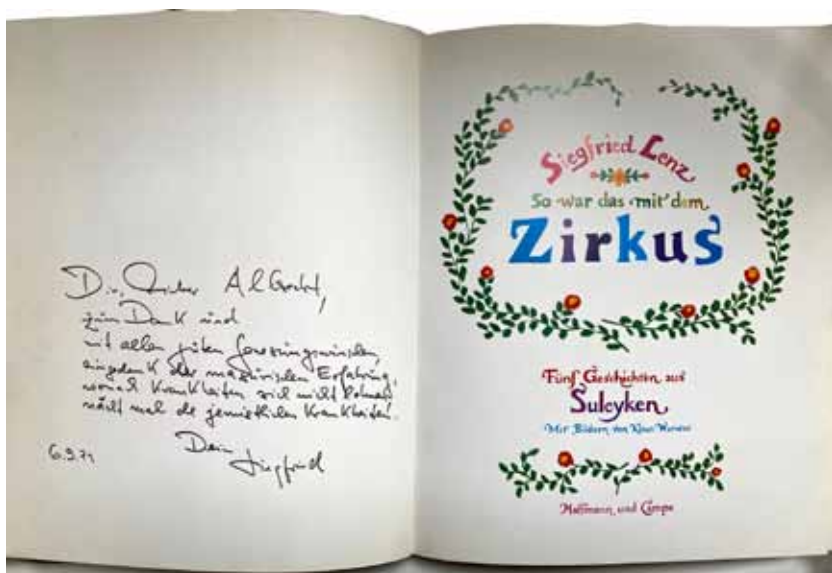 Dir, lieber
zum Dank und
mit allen guten Genesungswünschen,
eingedenk der masurischen Erfahrung,
wonach Krankheiten sich nicht lohnen
nicht mal die gemütlichen Krankheiten.
Dein
Siegfried
6.9.71
Siegfried Lenz
So war das mit dem
Zirkus
Fünf Geschichten aus
Suleyken
Mit Bildern von Klaus Warwas
Hoffmann und Campe